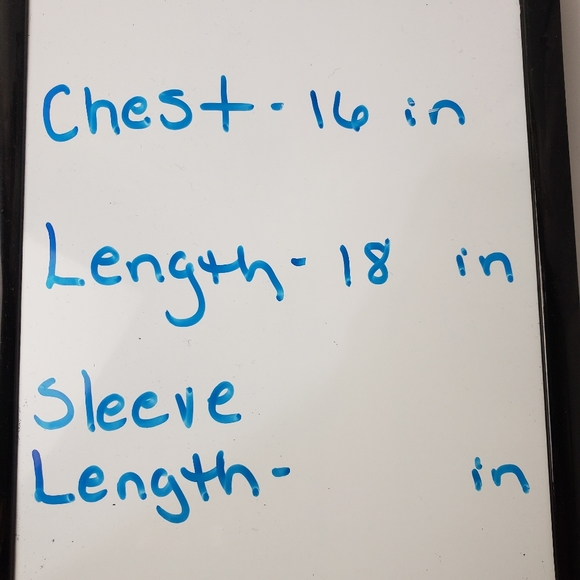 Chest - 16 in
Length - 18 in
Sleeve
Length - in